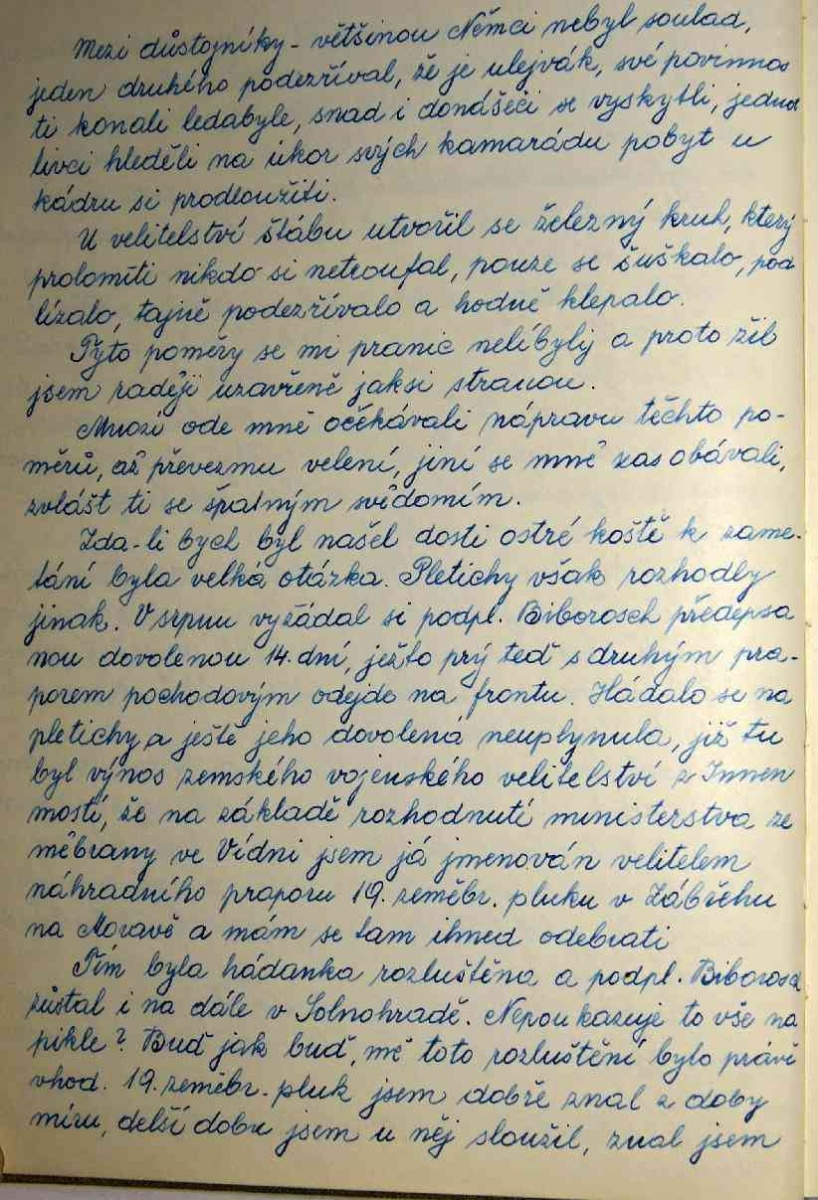 Mezi důstojníky - většinou Němci nebyl soulad,
jeden druhého podezříval, že je ulejvák, své povinnos
ti konali ledabyle, snad i donášeči se vyskytli, jednot
livci hleděli na úkor svých kamarádu pobyt u
kádru si prodloužiti.
U velitelství štábu utvořil se železný kruh, který
prolomiti nikdo si netroufal, pouze se šuškalo, pod
lízalo, tajně podezřívalo a hodně klepalo.
Tyto poměry se mi pranic nelíbyly a proto žil
jsem raději uzavřeně jaksi stranou.
Mnozí ode mně očekávali nápravu těchto po-
měrů, až převezmu velení, jiní se mně zas obávali,
zvlášt ti se špatným svědomím.
Zda-li bych byl našel dosti ostré koště k zame-
tání byla velká otázka. Pletichy však rozhodly
jinak. V srpnu vyžádal si podpl. Biborosch předepsa
nou dovolenou 14. dní, ježto prý teď s druhým pra-
porem pochodovým odejde na frontu. Hádalo se na
pletichy a ještě jeho dovolená neuplynula, již tu
byl výnos zemského vojenského velitelství z Innen
mostí, že na základě rozhodnutí ministerstva ze
měbrany ve Vídni jsem já jmenován velitelem
náhradního praporu 19. zeměbr. pluku v Zábřehu
na Moravě a mám se tam ihned odebrati
Tím byla hádanka rozluštěna a podpl. Biborosch
zůstal i na dále v Solnohradě. Nepoukazuje to vše na
pikle? Buď jak buď, mě toto rozluštění bylo právě
vhod. 19. zeměbr. pluk jsem dobře znal z doby
míru, delší dobu jsem u něj sloužil, znal jsem